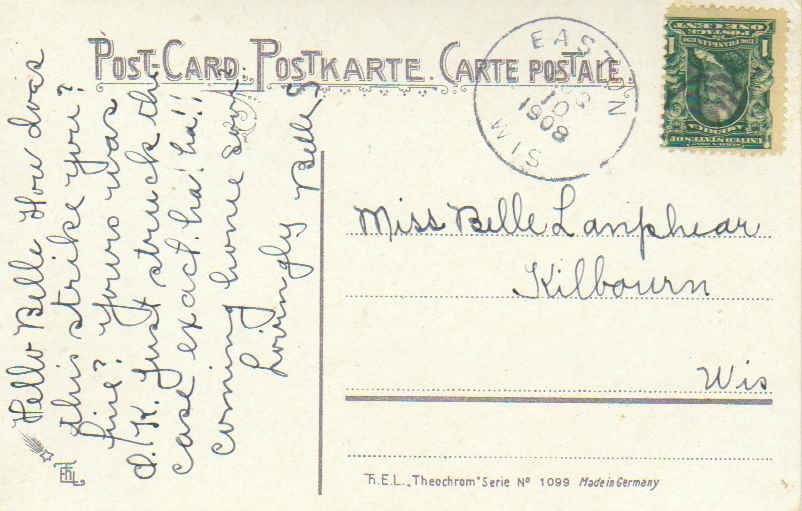 POST-CARD. POSTKARTE. CARTE POSTALE.
EASTON
10
1908
WIS
Hello Belle How does
this strike you?
fine? Yours was
O.K. Just struck the
case exact. ha! ha!!
coming home soon
Lovingly Belle
Miss Belle Lanphear
Kilbourn
Wis
Th.E.L. „Theochrom" Serie Nº 1099 Made in Germany
ThEL
1 POSTAGE 1
ONE CENT